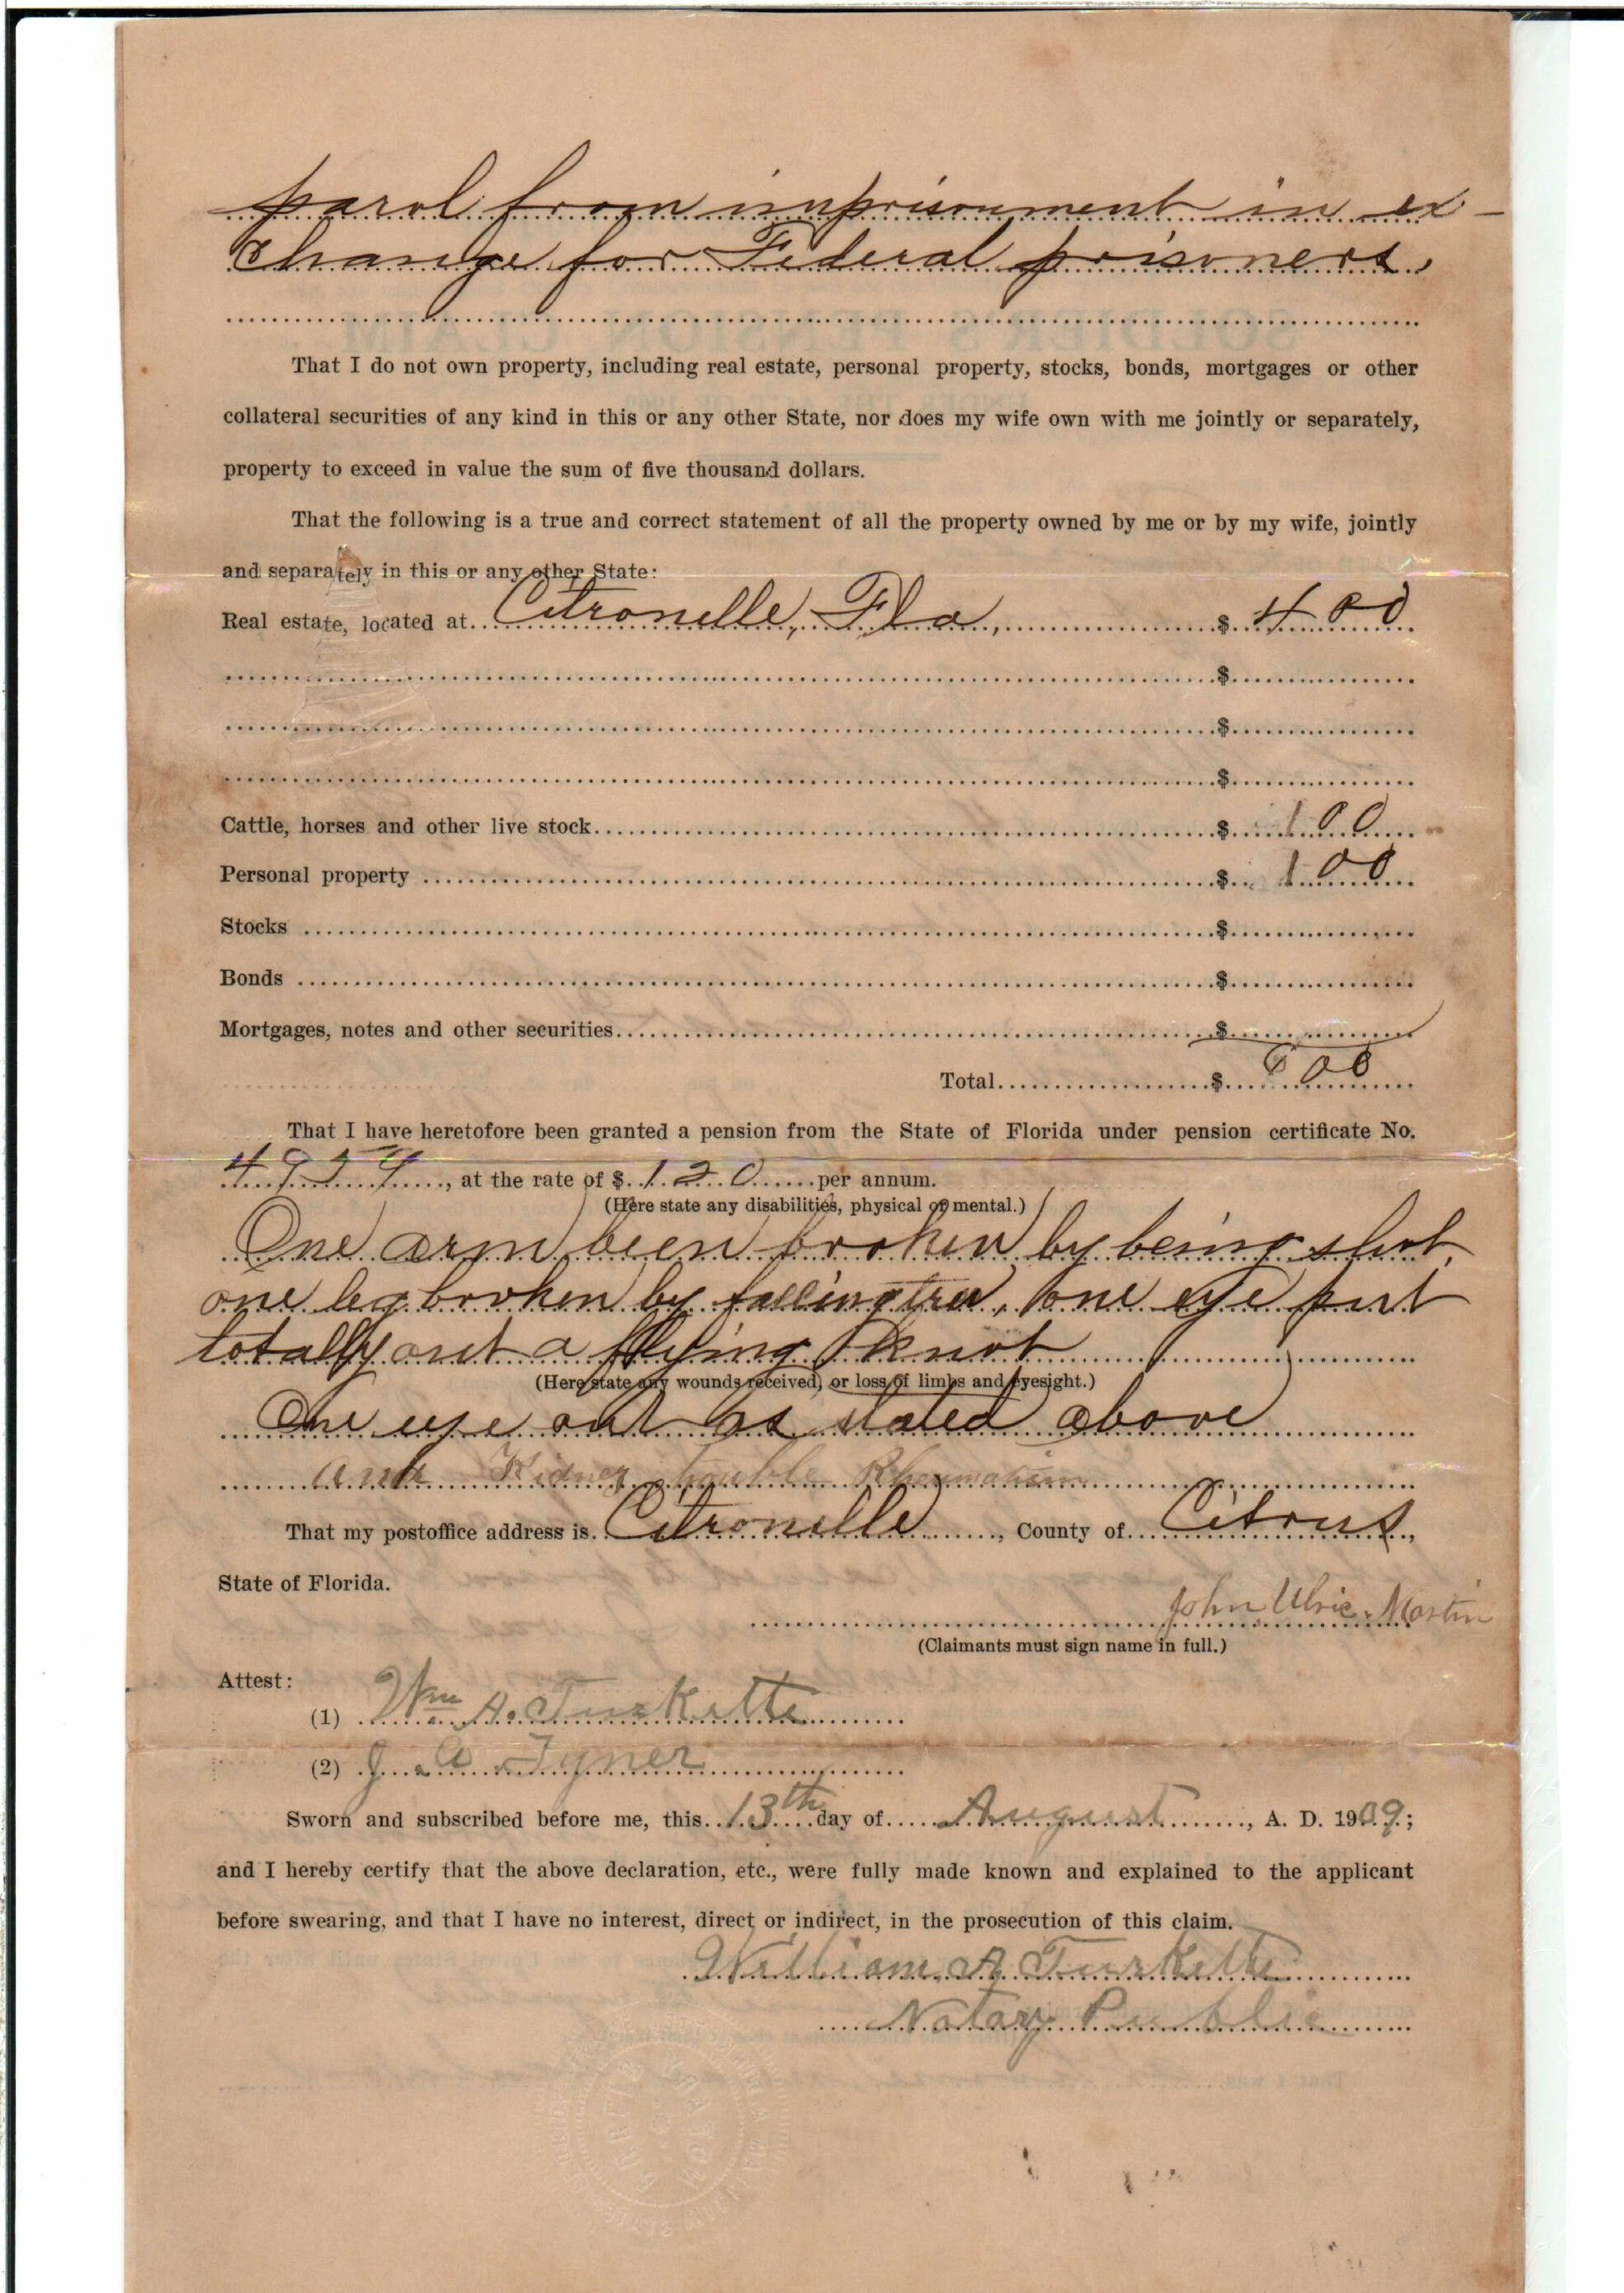 parol from imprisonment in ex-
change for Federal prisoners.
That I do not own property, including real estate, personal property, stocks, bonds, mortgages or other
collateral securities of any kind in this or any other State, nor does my wife own with me jointly or separately,
property to exceed in value the sum of five thousand dollars.
That the following is a true and correct statement of all the property owned by me or by my wife, jointly
and separately in this or any other State:
Real estate, located at Citronelle, Fla, $ 400
$
$
$
Cattle, horses and other live stock $ 100
Personal property $ 100
Stocks $
Bonds $
Mortgages, notes and other securities $
Total $ 600
That I have heretofore been granted a pension from the State of Florida under pension certificate No.
4954, at the rate of $ 120 per annum.
(Here state any disabilities, physical or mental.)
One arm been broken by being shot,
one leg broken by falling tree, one eye put
totally out a flying knot
(Here state any wounds received, or loss of limbs and eyesight.)
One eye out as stated above
and Kidney trouble Rheumatism
That my postoffice address is Citronelle, County of Citrus,
State of Florida.
John Ulric Martin
(Claimants must sign name in full.)
Attest:
(1) Wm A. Turkette
(2) J. A. Tyner
Sworn and subscribed before me, this 13th day of August, A. D. 1909;
and I hereby certify that the above declaration, etc., were fully made known and explained to the applicant
before swearing, and that I have no interest, direct or indirect, in the prosecution of this claim.
William A Turkette
Notary Public